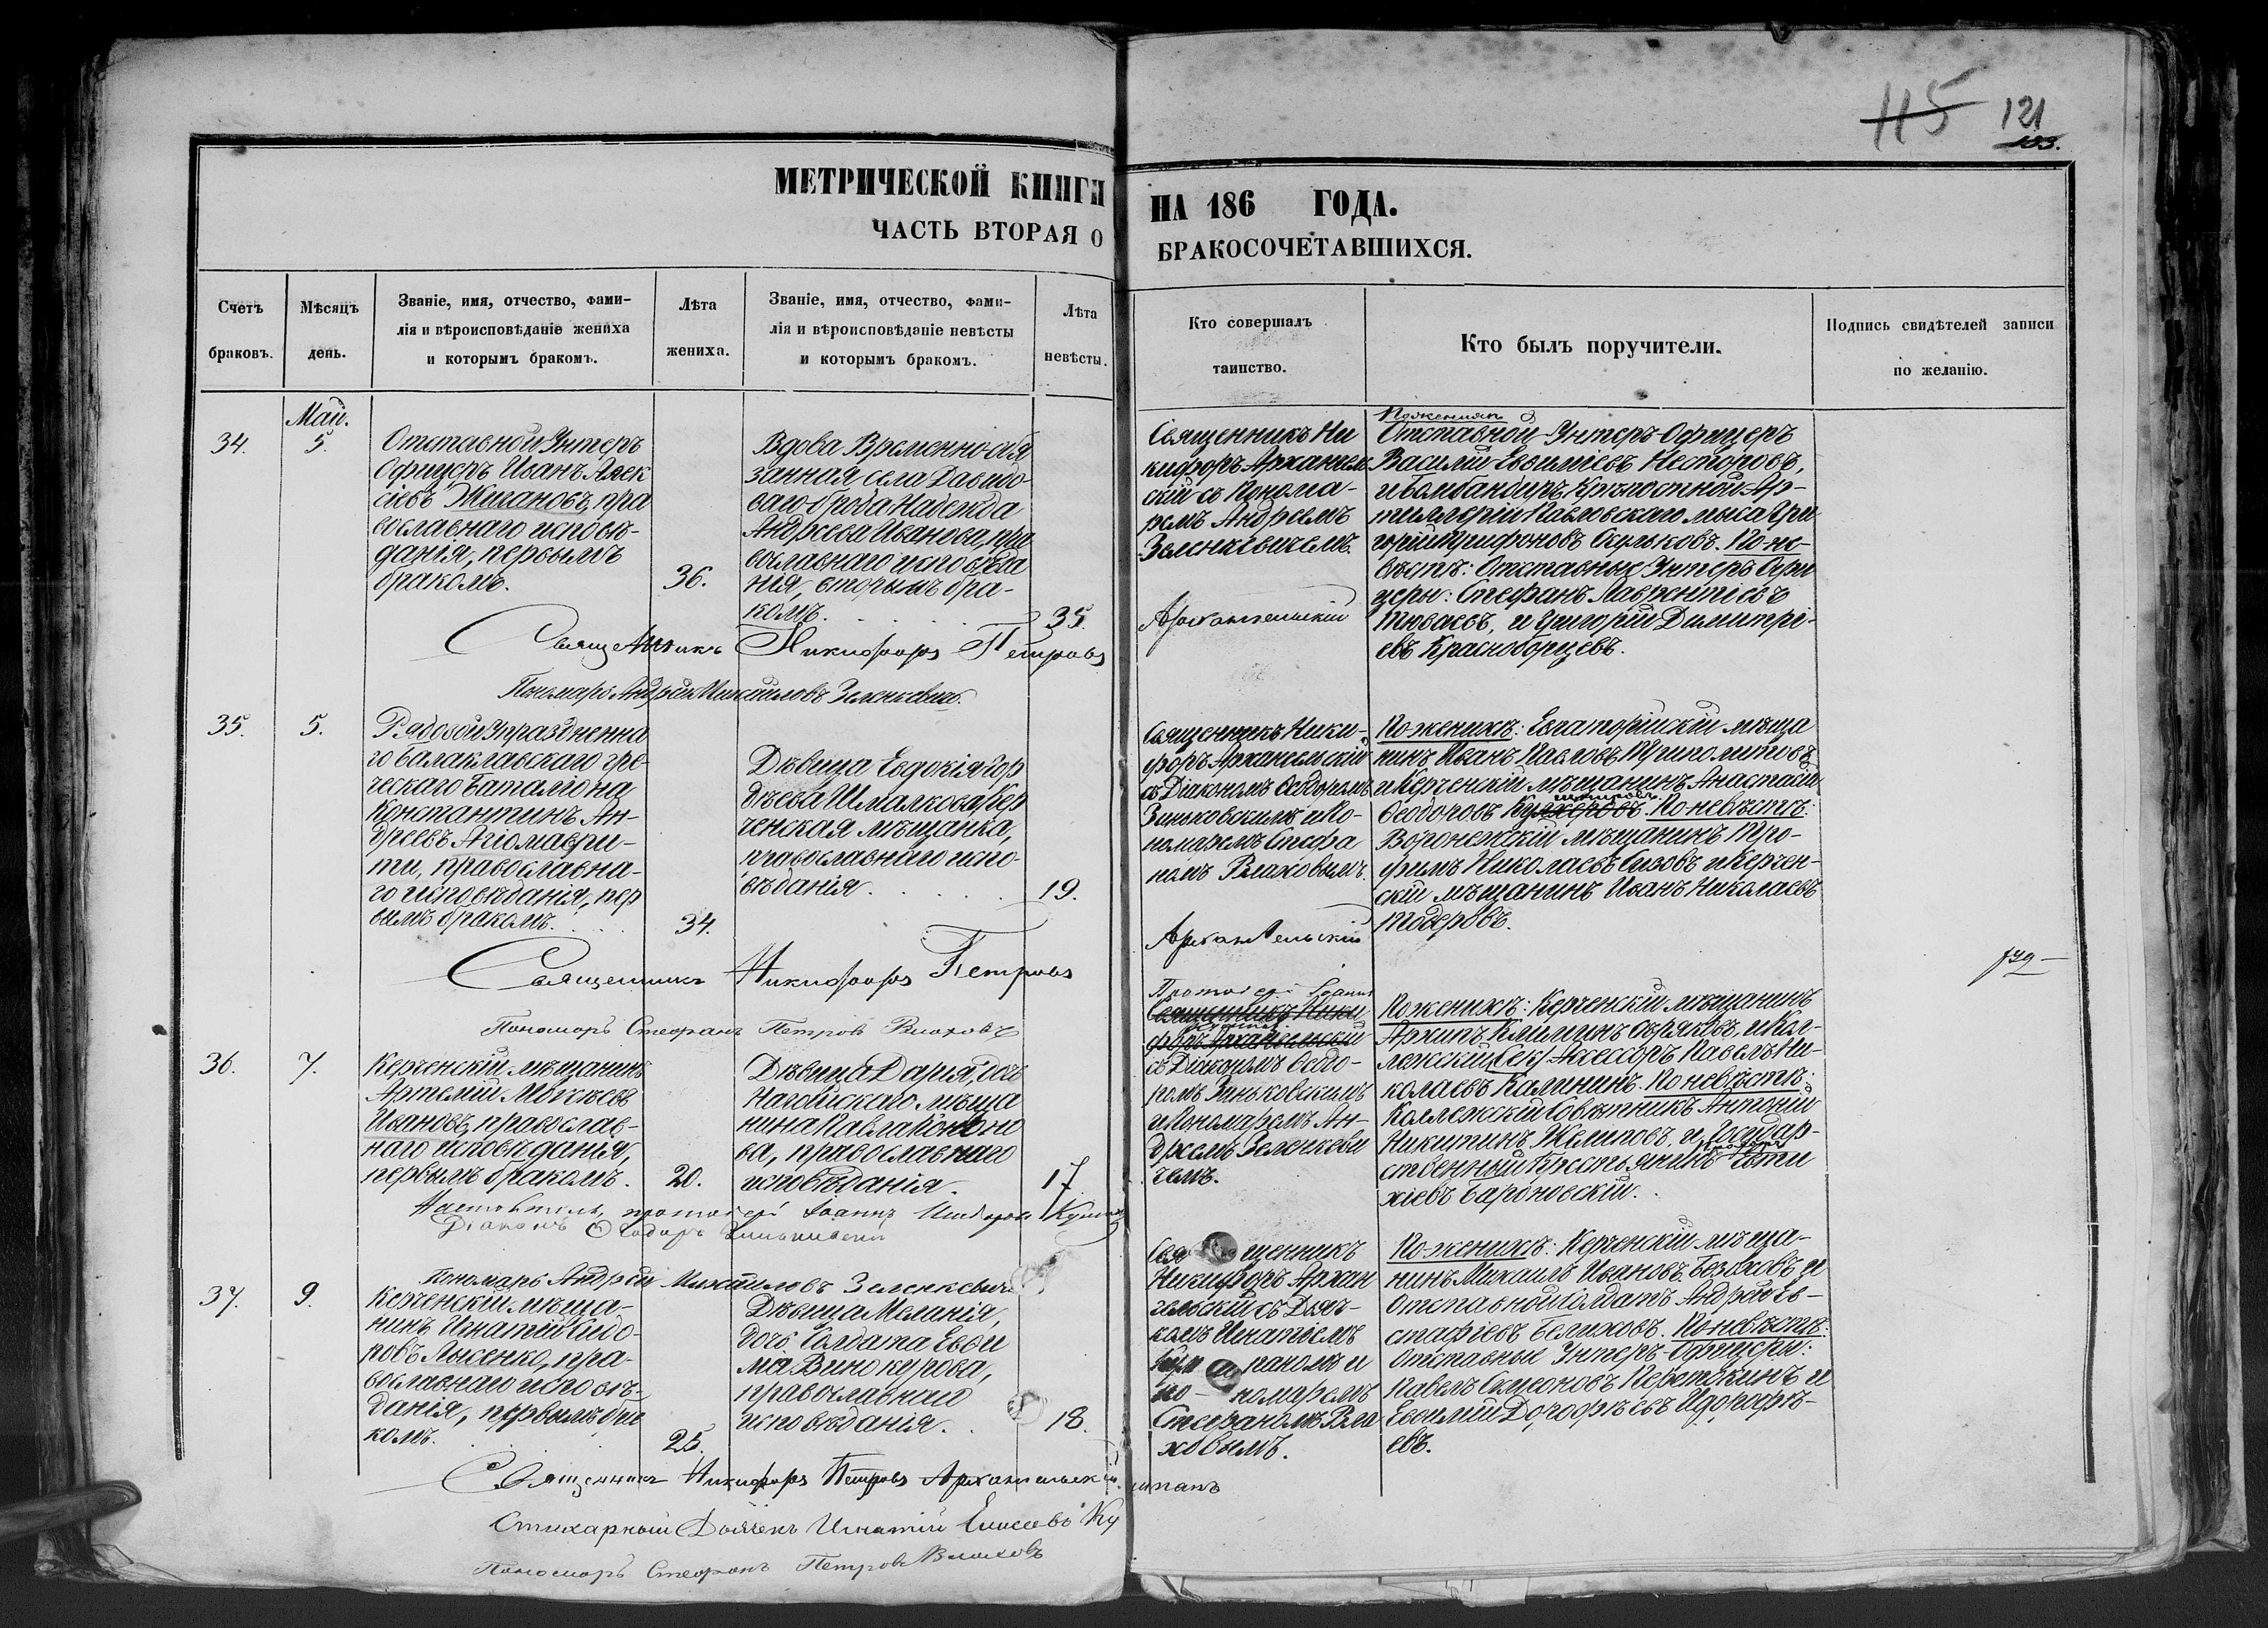 115 121
133.
МЕТРИЧЕСКОЙ КНИГИ НА 186 ГОДА.
ЧАСТЬ ВТОРАЯ О БРАКОСОЧЕТАВШИХСЯ.
Счетъ браковъ.
Мѣсяцъ день.
Званіе, имя, отчество, фами-
лія и вѣроисповѣданіе жениха
и которымъ бракомъ.
Лѣта жениха.
Званіе, имя, отчество, фами-
лія и вѣроисповѣданіе невѣсты
и которымъ бракомъ.
Лѣта невѣсты.
Кто совершалъ таинство.
Кто былъ поручители.
Подпись свидѣтелей записи
по желанію.
Май.
34.
5.
Отставной Унтеръ
Офицеръ Иванъ Алек
сіевъ Жигановъ, пра
вославнаго исповѣ-
данія, первымъ
бракомъ.
36.
Вдова Временно-обя
занная села Давидо-
ваго брода Надежда
Андреева Иванова, пра
вославнаго исповѣда
нія, вторымъ бра-
комъ.
35.
Священникъ Ни
кифоръ Архангель
скій съ Понома-
ремъ Андреемъ
Зеленкевичемъ.
Архангельскій
По женихѣ
Отставной Унтеръ-Офицеръ
Василій Евѳиміевъ Несторовъ,
и бомбандиръ Крѣпостной Ар-
тиллеріи Павловскаго мыса Гри
горій Трифоновъ Кульковъ. По не-
вѣстѣ: Отставные Унтеръ Офи
церы: Стефанъ Лаврентіевъ
Тюваевъ, и Григорій Димитрі-
евъ Красноборцевъ.
Священникъ Никифоръ Петровъ
Пономарь Андрей Михайловъ Зеленкевичъ.
35.
5.
Рядовой Упраздненна
го Балаклавскаго гре-
ческаго Баталіона
Константинъ Ан-
дреевъ Агіомаври-
ти, православна-
го исповѣданія, пер
вымъ бракомъ.
34.
Дѣвица Евдокія Гор
дѣева Шмалкова, Кер
ченская мѣщанка,
православнаго испо-
вѣданія.
19.
Священникъ Ники-
форъ Архангельскій
съ Діакономъ Ѳеодоромъ
Зиньковскимъ и По-
номаремъ Стефа
номъ Влаховымъ.
Архангельскій
По женихѣ: Евпаторійскій мѣща
нинъ Иванъ Павловъ Триполитовъ
и Керченскій мѣщанинъ Анастасій
Ѳеодоровъ По невѣстѣ:
Воронежскій мѣщанинъ Тро-
фимъ Николаевъ Сизовъ и Керчен-
скій мѣщанинъ Иванъ Николаевъ
Тодеровъ.
Священникъ Никифоръ Петровъ
Пономарь Стефанъ Петровъ Влаховъ
36.
7.
Керченскій мѣщанинъ
Артемій Моксѣевъ
Ивановъ, православ-
наго исповѣданія,
первымъ бракомъ.
20.
Дѣвица Дарія, дочь
Ногайскаго мѣща
нина Павла Кононо
ва, православнаго
исповѣданія.
17
Протоіерей Іоаннъ
Священникъ Ники
форъ Архангельскій
съ Діакономъ Ѳеодо-
ромъ Зиньковскимъ
и Пономаремъ Ан-
дреемъ Зеленкеви
чемъ.
По женихѣ: Керченскій мѣщанинъ
Архипъ Климинъ и Кол-
лежскій Секр Ассесоръ Павелъ Ни-
колаевъ Калининъ. По невѣстѣ:
Коллежскій Совѣтникъ Антоній
Никитинъ и Государ-
ственный Крестьянинъ
хіевъ Барановскій.
Настоятель, протоіерей Іоаннъ
Діаконъ Ѳеодоръ Зиньковскій
Пономарь Андрей Михайловъ Зеленкевичъ
37.
9.
Керченскій мѣща-
нинъ Игнатій Сидо-
ровъ Лысенко, пра-
вославнаго исповѣ-
данія, первымъ бра
комъ.
25.
Дѣвица Меланія,
дочь Солдата Евѳи
ма Винокурова,
православнаго
исповѣданія.
18.
Священникъ
НикифоръАрхан
гельскій съ Дьяч-
комъ Игнатіемъ
и
по-номаремъ
Стефаномъ Вла
ховымъ.
По женихѣ: Керченскій мѣща-
нинъ Михаилъ Ивановъ и
Отставной Солдатъ Андрей Ев-
стафіевъ Бѣлиховъ. По невѣстѣ:
Отставные Унтеръ-Офицеры:
Павелъ Симеоновъ и
Евѳимій Дороѳѣевъ Идороѳѣ-
евъ.
Священникъ Никифоръ Петровъ Архангельскій
Стихарный Дьячекъ Игнатій Елисеевъ Ку
Пономарь Стефанъ Петровъ Влаховъ